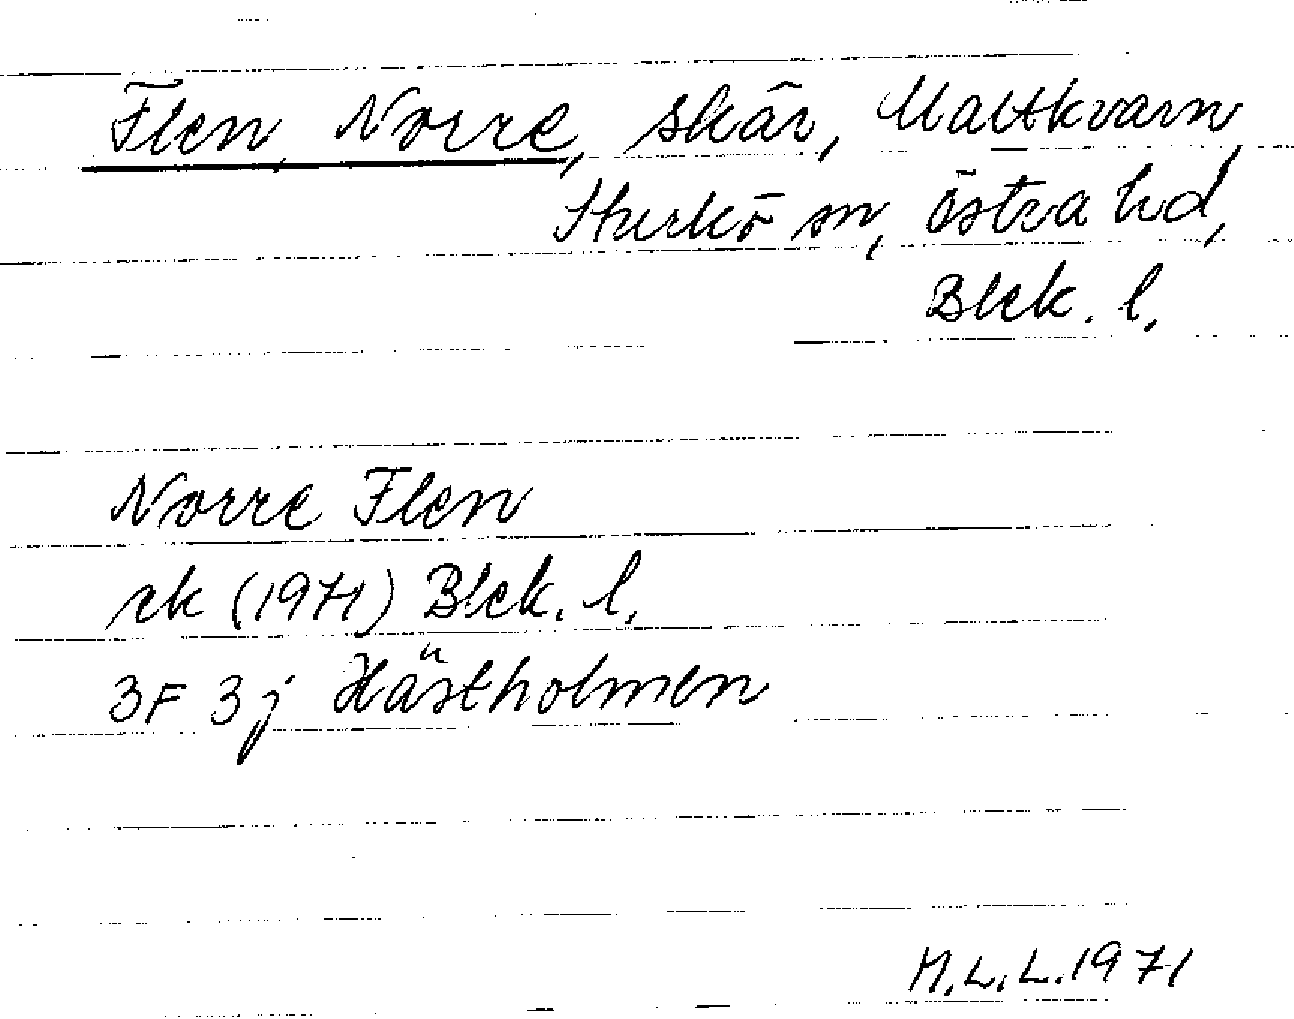 Flen, Norre, skär, Maltkvarn,
Sturkö sn, östra hd,
Blek. l.
Norre Flen
rk (1971) Blek. l.
3F 3j Hästholmen
M.L.L. 1971